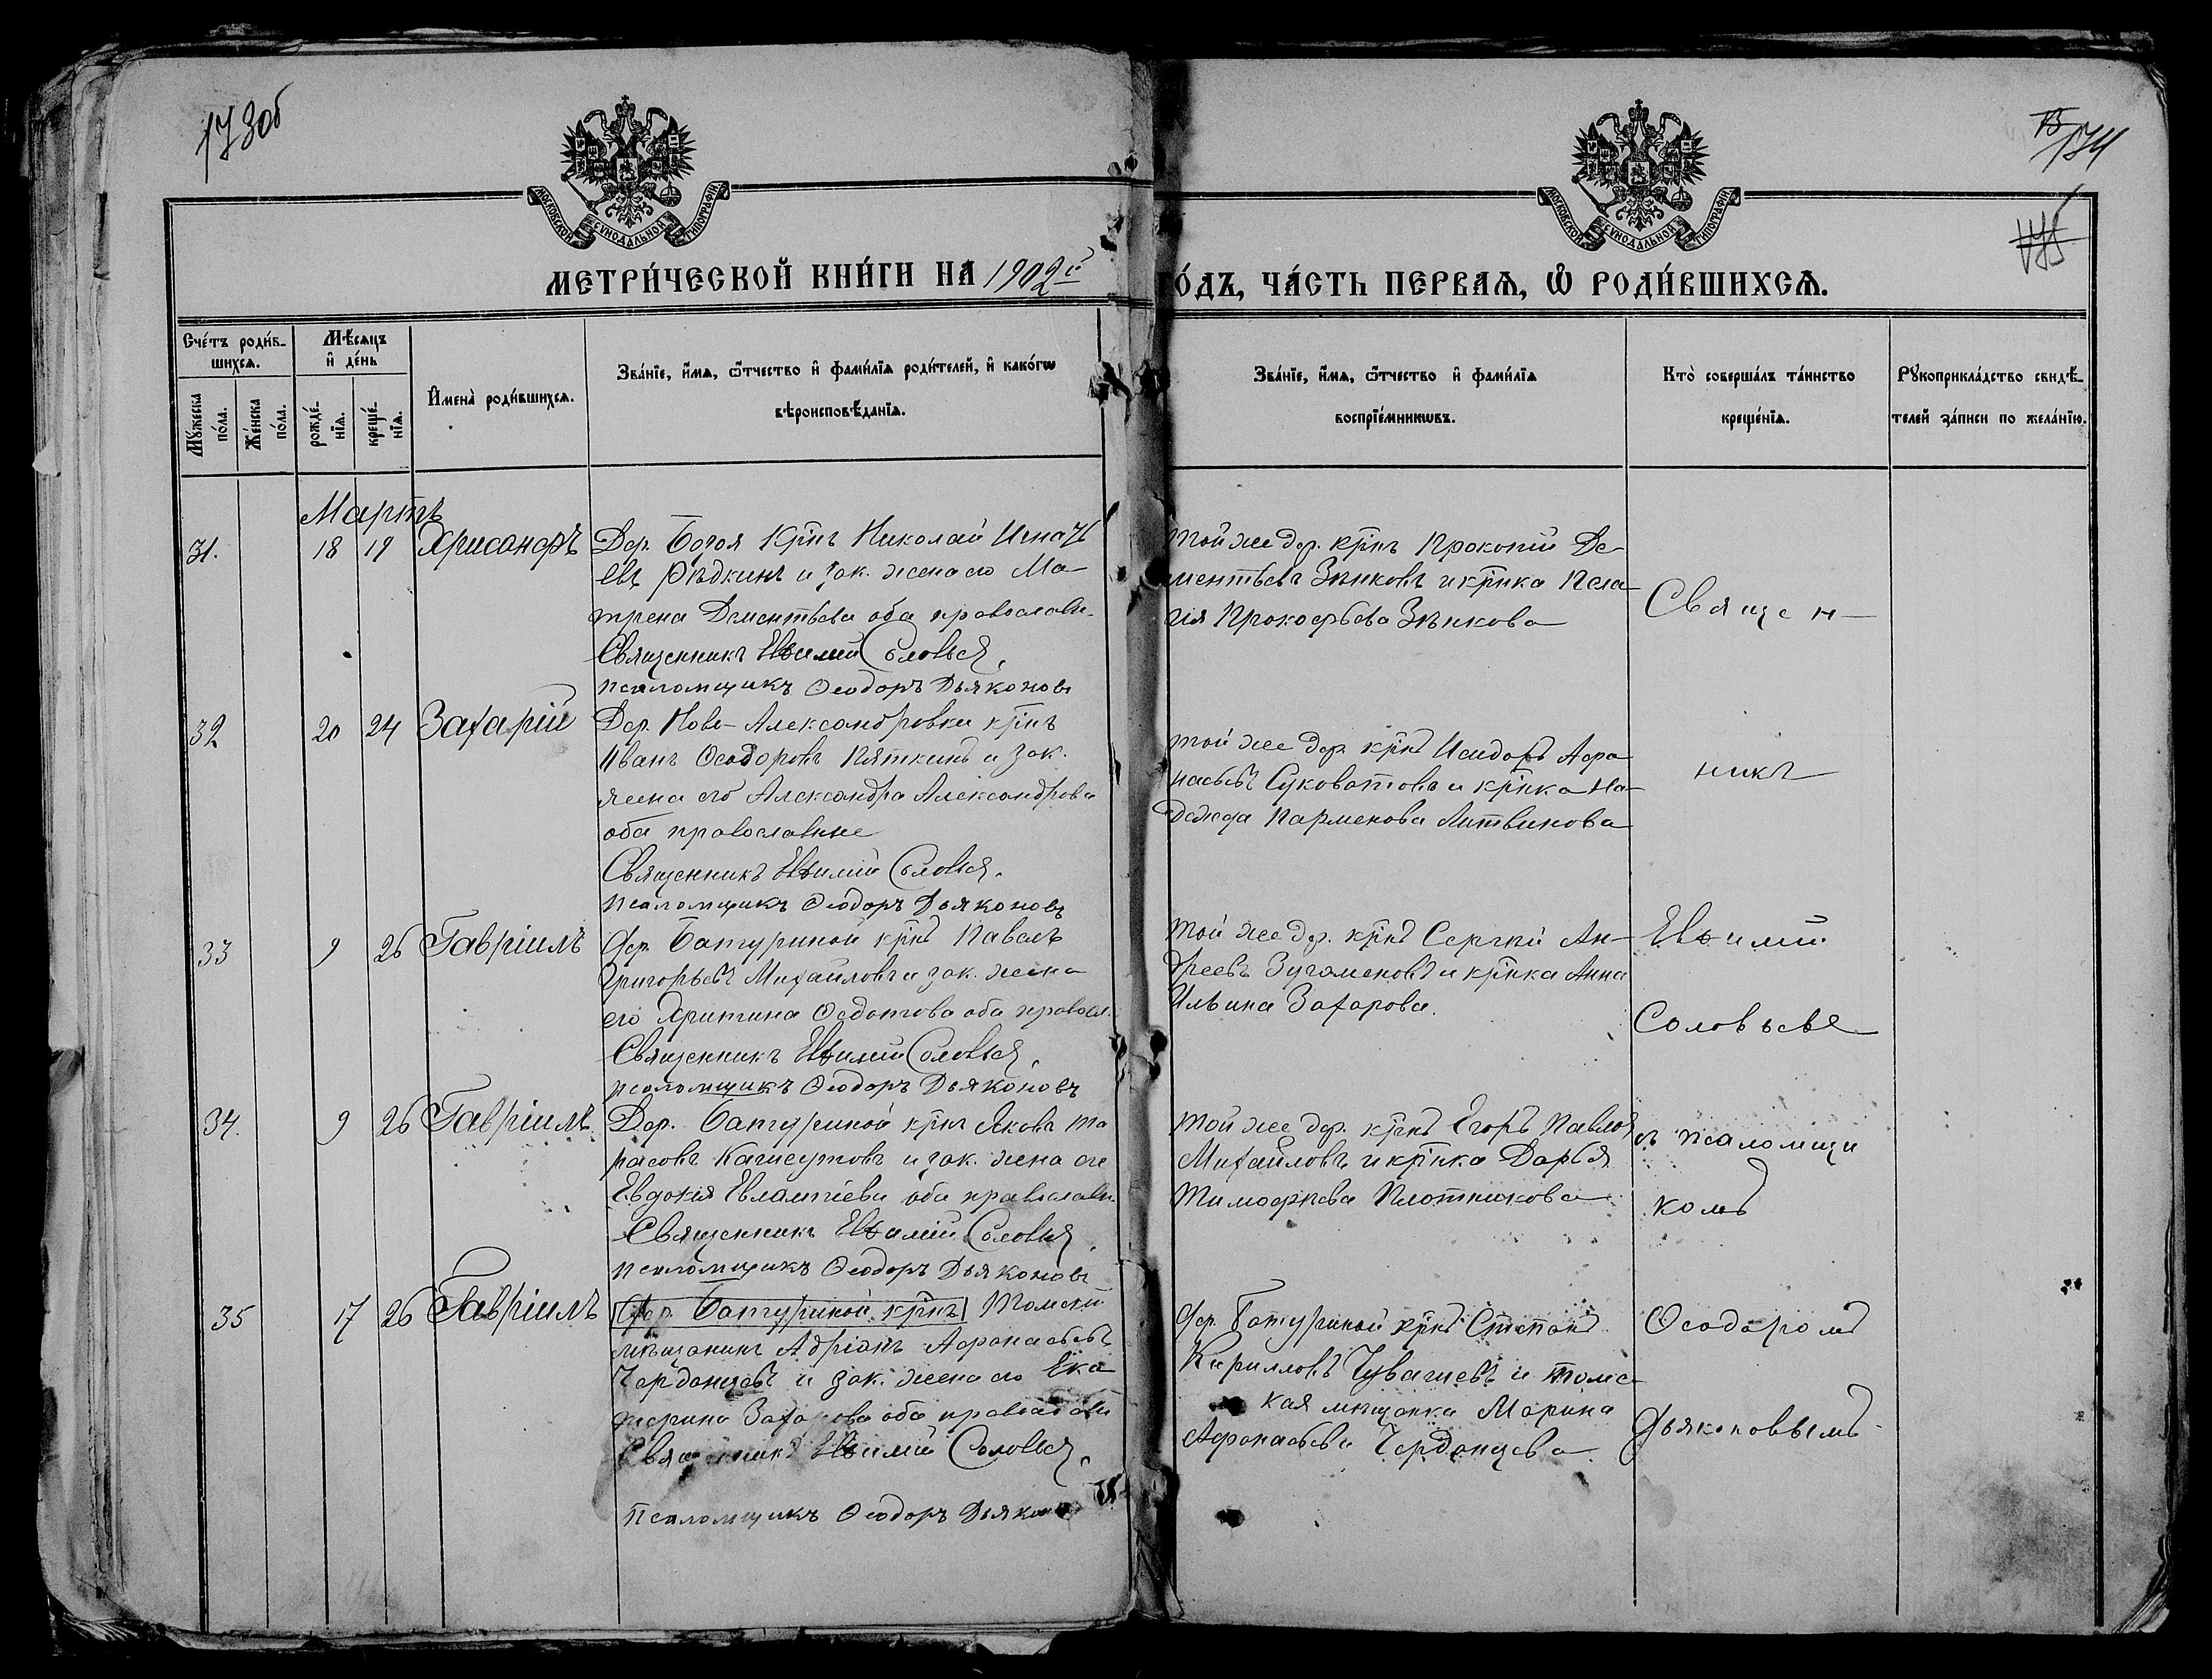 173об
174
175
МОСКОВСКОЙ СѴНОДАЛЬНОЙ ТИПОГРАФІИ
МОСКОВСКОЙ СѴНОДАЛЬНОЙ ТИПОГРАФІИ
МЕТРИ́ЧЕСКОЙ КНИ́ГИ НА 1902й
ГО́ДЪ, ЧА́СТЬ ПЕРВАѦ, Ѡ РОДИ́ВШИХСѦ.
Сче́тъ роди́в-
шихсѧ.
Мꙋжеска
по́ла.
Же́нска
по́ла.
Мѣ́сѧцъ
и҆ де́нь
рожде́-
нїѧ.
креще́-
нїѧ.
И҆мена̀ роди́вшихсѧ.
Зва́нїе, и҆́мѧ, ѻ҆́тчество и҆ фами́лїѧ роди́телей, и҆ како́гѡ
вѣроисповѣ́данїѧ.
Зва́нїе, и҆́мѧ, ѻ҆́тчество и҆ фами́лїѧ
воспрїе́мникѡвъ.
Кто̀ соверша́лъ та́инство
креще́нїѧ.
Рꙋкоприкла́дство свидѣ́-
телей за́писи по жела́нїю.
Мартъ
31.
18
19
Хрисанфъ
Дер. Крнъ Николай Игнать
евъ Рѣдкинъ и зак. жена его Ма-
трена Дементьева оба православн.
Священникъ Евѳимій Соловьев
Псаломщикъ Ѳеодоръ Дьяконовъ
той же дер. крнъ Прокопій Де-
ментьевъ Зѣнковъ и крнка Пела-
гія Прокофьева Зѣнкова
Священ-
32
20
24
Захарій
Дер. Ново-Александровки крнъ
Иванъ Ѳеодоровъ Пяткинъ и зак.
жена его Александра Александрова
оба православные
Священникъ Евѳимій Соловьев
Псаломщикъ Ѳеодоръ Дьяконовъ
той же дер. крнъ Исидоръ Афа-
насьевъ Суковатовъ и крнка На-
дежда Парменова Литвинова
никъ
33
9
26
Гавріилъ
Дер. Батуриной крнъ Павелъ
Григорьевъ Михайловъ и зак. жена
его Христина Ѳедотова оба правосл.
Священникъ Евѳимій Соловьев
Псаломщикъ Ѳеодоръ Дьяконовъ
той же дер. крнъ Сергій Ан-
дреевъ и крнка Анна
Ильина Захарова.
Евѳимій
Соловьевъ
34.
9
26
Гавріилъ
Дер. Батуриной крнъ Яковъ Та
расовъ и зак. жена его
Евдокія Евлампіева оба православн.
Священникъ Евѳимій Соловьев
Псаломщикъ Ѳеодоръ Дьяконовъ
той же дер. крнъ Егоръ Павловъ
Михайловъ и крнка Дарья
Тимофеева Плотникова
съ псаломщи
комъ
35
17
26
Гавріилъ
Дер. Батуриной крнъ Томскій
мѣщанинъ Адріанъ Афанасьевъ
Черданцевъ и зак. жена его Ека
терина Захарова оба православн
Священникъ Евѳимій Соловьев
Псаломщикъ Ѳеодоръ Дьяконов
Дер. Батуриной крнъ Степанъ
Кирилловъ Чувашевъ и томс-
кая мѣщанка Марина
Афанасьева Черданцева
Ѳеодоромъ
Дьяконовымъ